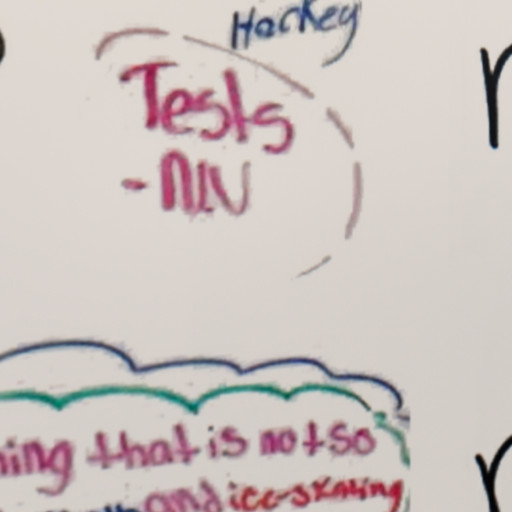 Hockey
Tests
- NIV
ning that is not so
and ice-skating